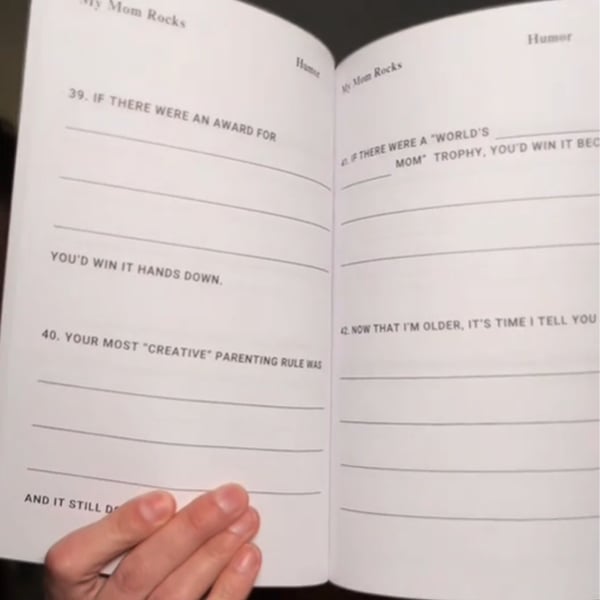 My Mom Rocks
Humor
39. IF THERE WERE AN AWARD FOR
YOU'D WIN IT HANDS DOWN.
40. YOUR MOST "CREATIVE" PARENTING RULE WAS
AND IT STILL
My Mom Rocks
Humor
41. IF THERE WERE A "WORLD'S
MOM" TROPHY, YOU'D WIN IT BEC
42. NOW THAT I'M OLDER, IT'S TIME I TELL YOU